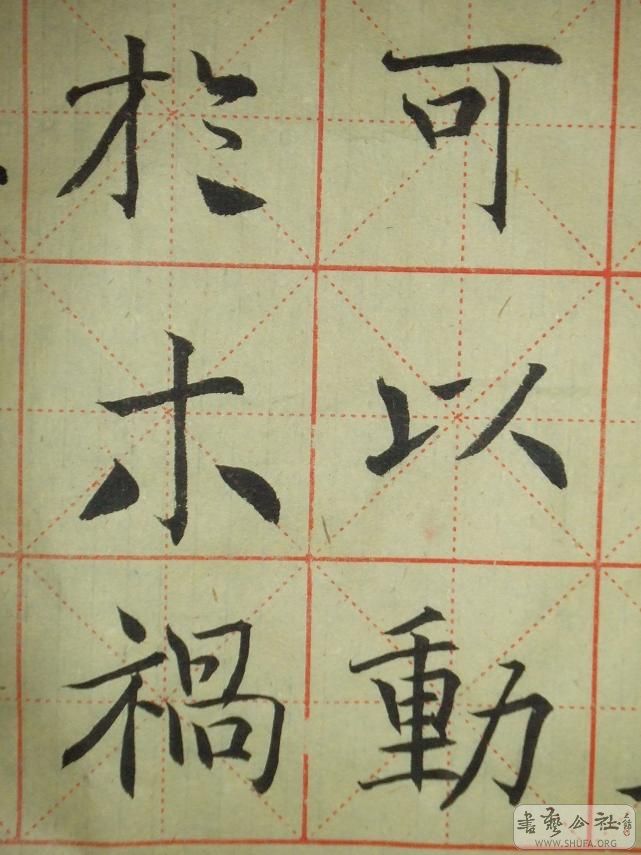 可以動
於木禍
書藝公社
WWW.SHUFA.ORG